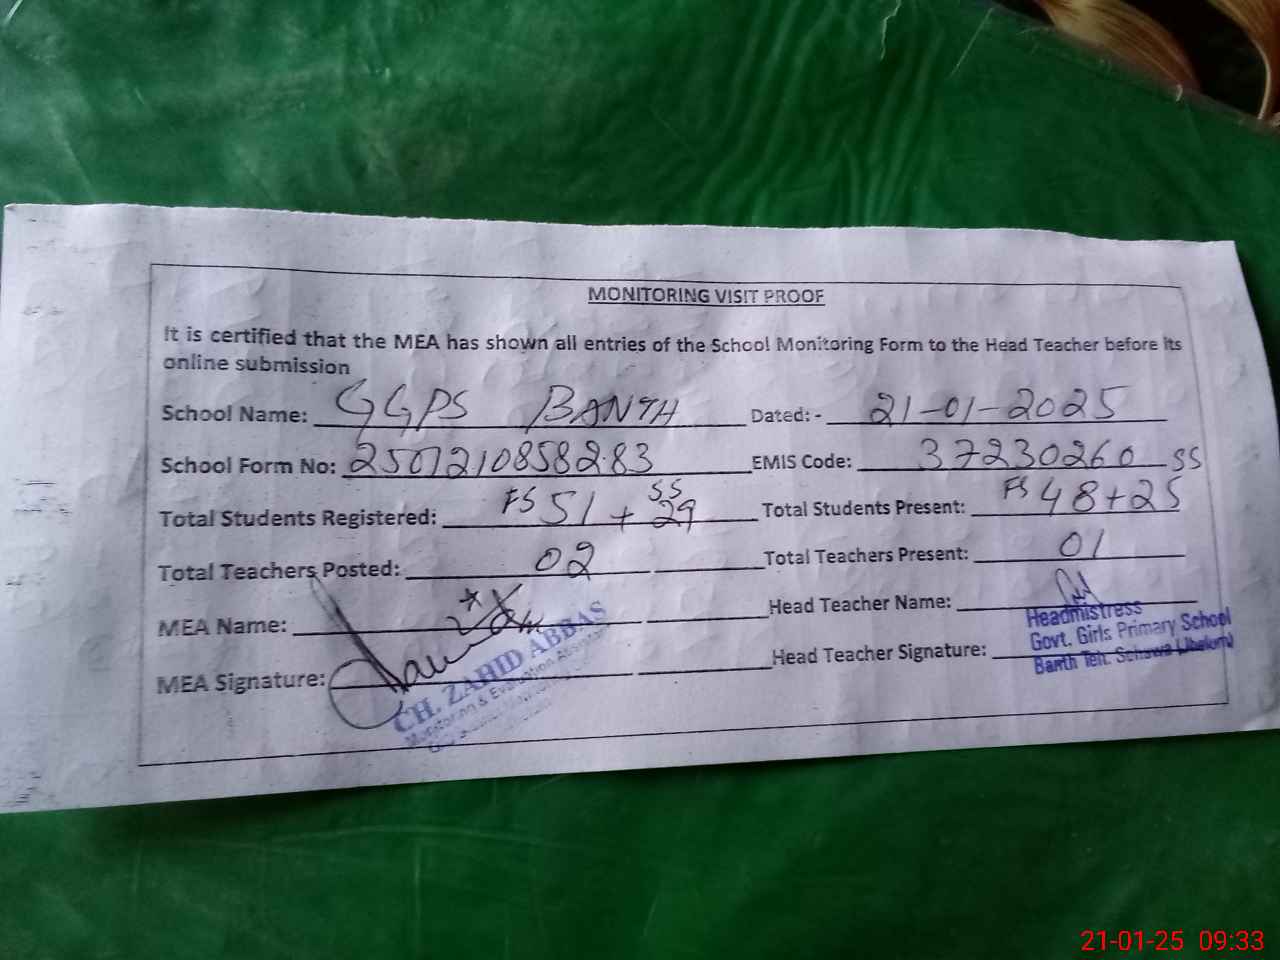 MONITORING VISIT PROOF
It is certified that the MEA has shown all entries of the School Monitoring Form to the Head Teacher before its
online submission
School Name: GGPS BANTH Dated: - 21-01-2025
School Form No: 250121085828 83 EMIS Code: 37230260
Total Students Registered: FS 51 + SS 29 Total Students Present: FS 48 + SS 25
Total Teachers Posted: 02 Total Teachers Present: 01
MEA Name: Head Teacher Name:
MEA Signature: Head Teacher Signature:
CH. ZAHID ABBAS
Monitoring & Evaluation
Headmistress
Govt. Girls Primary School
Banth Teh. Sohawa (Jhelum)
21-01-25 09:33